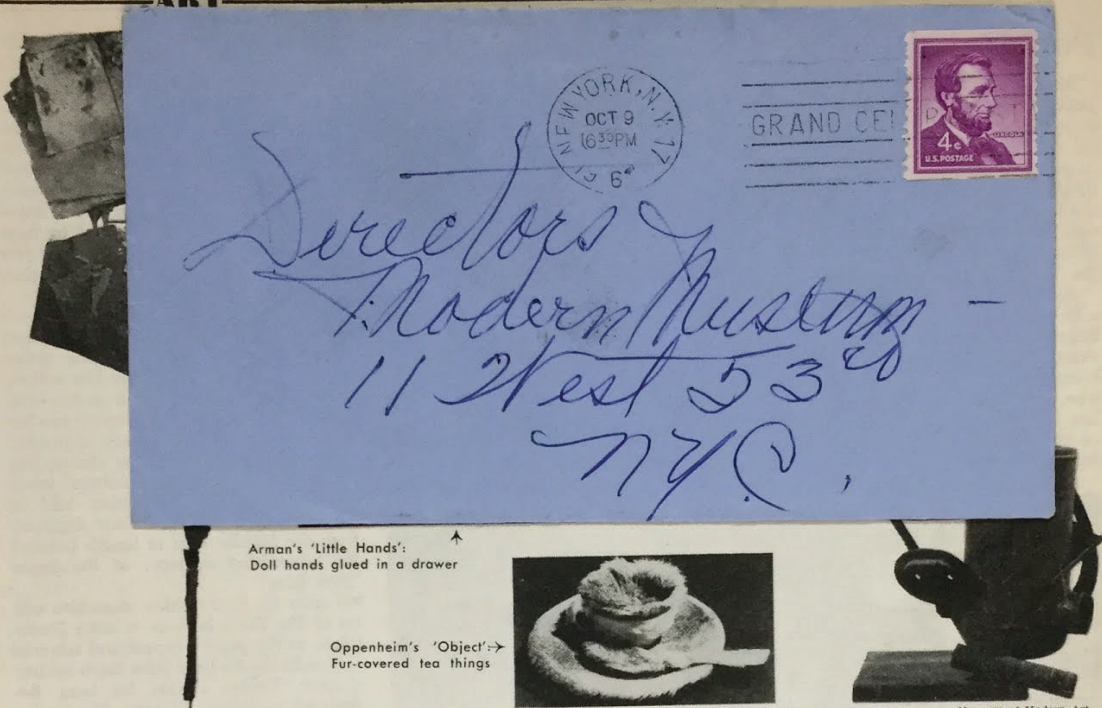 ART
NEW YORK, N.Y. 17
OCT 9
630PM
GRAND CE
4¢
LINCOLN
U.S. POSTAGE
Directors
Modern Museum —
11 West 53rd
NYC.
Arman's 'Little Hands':
Doll hands glued in a drawer
Oppenheim's 'Object':
Fur-covered tea things